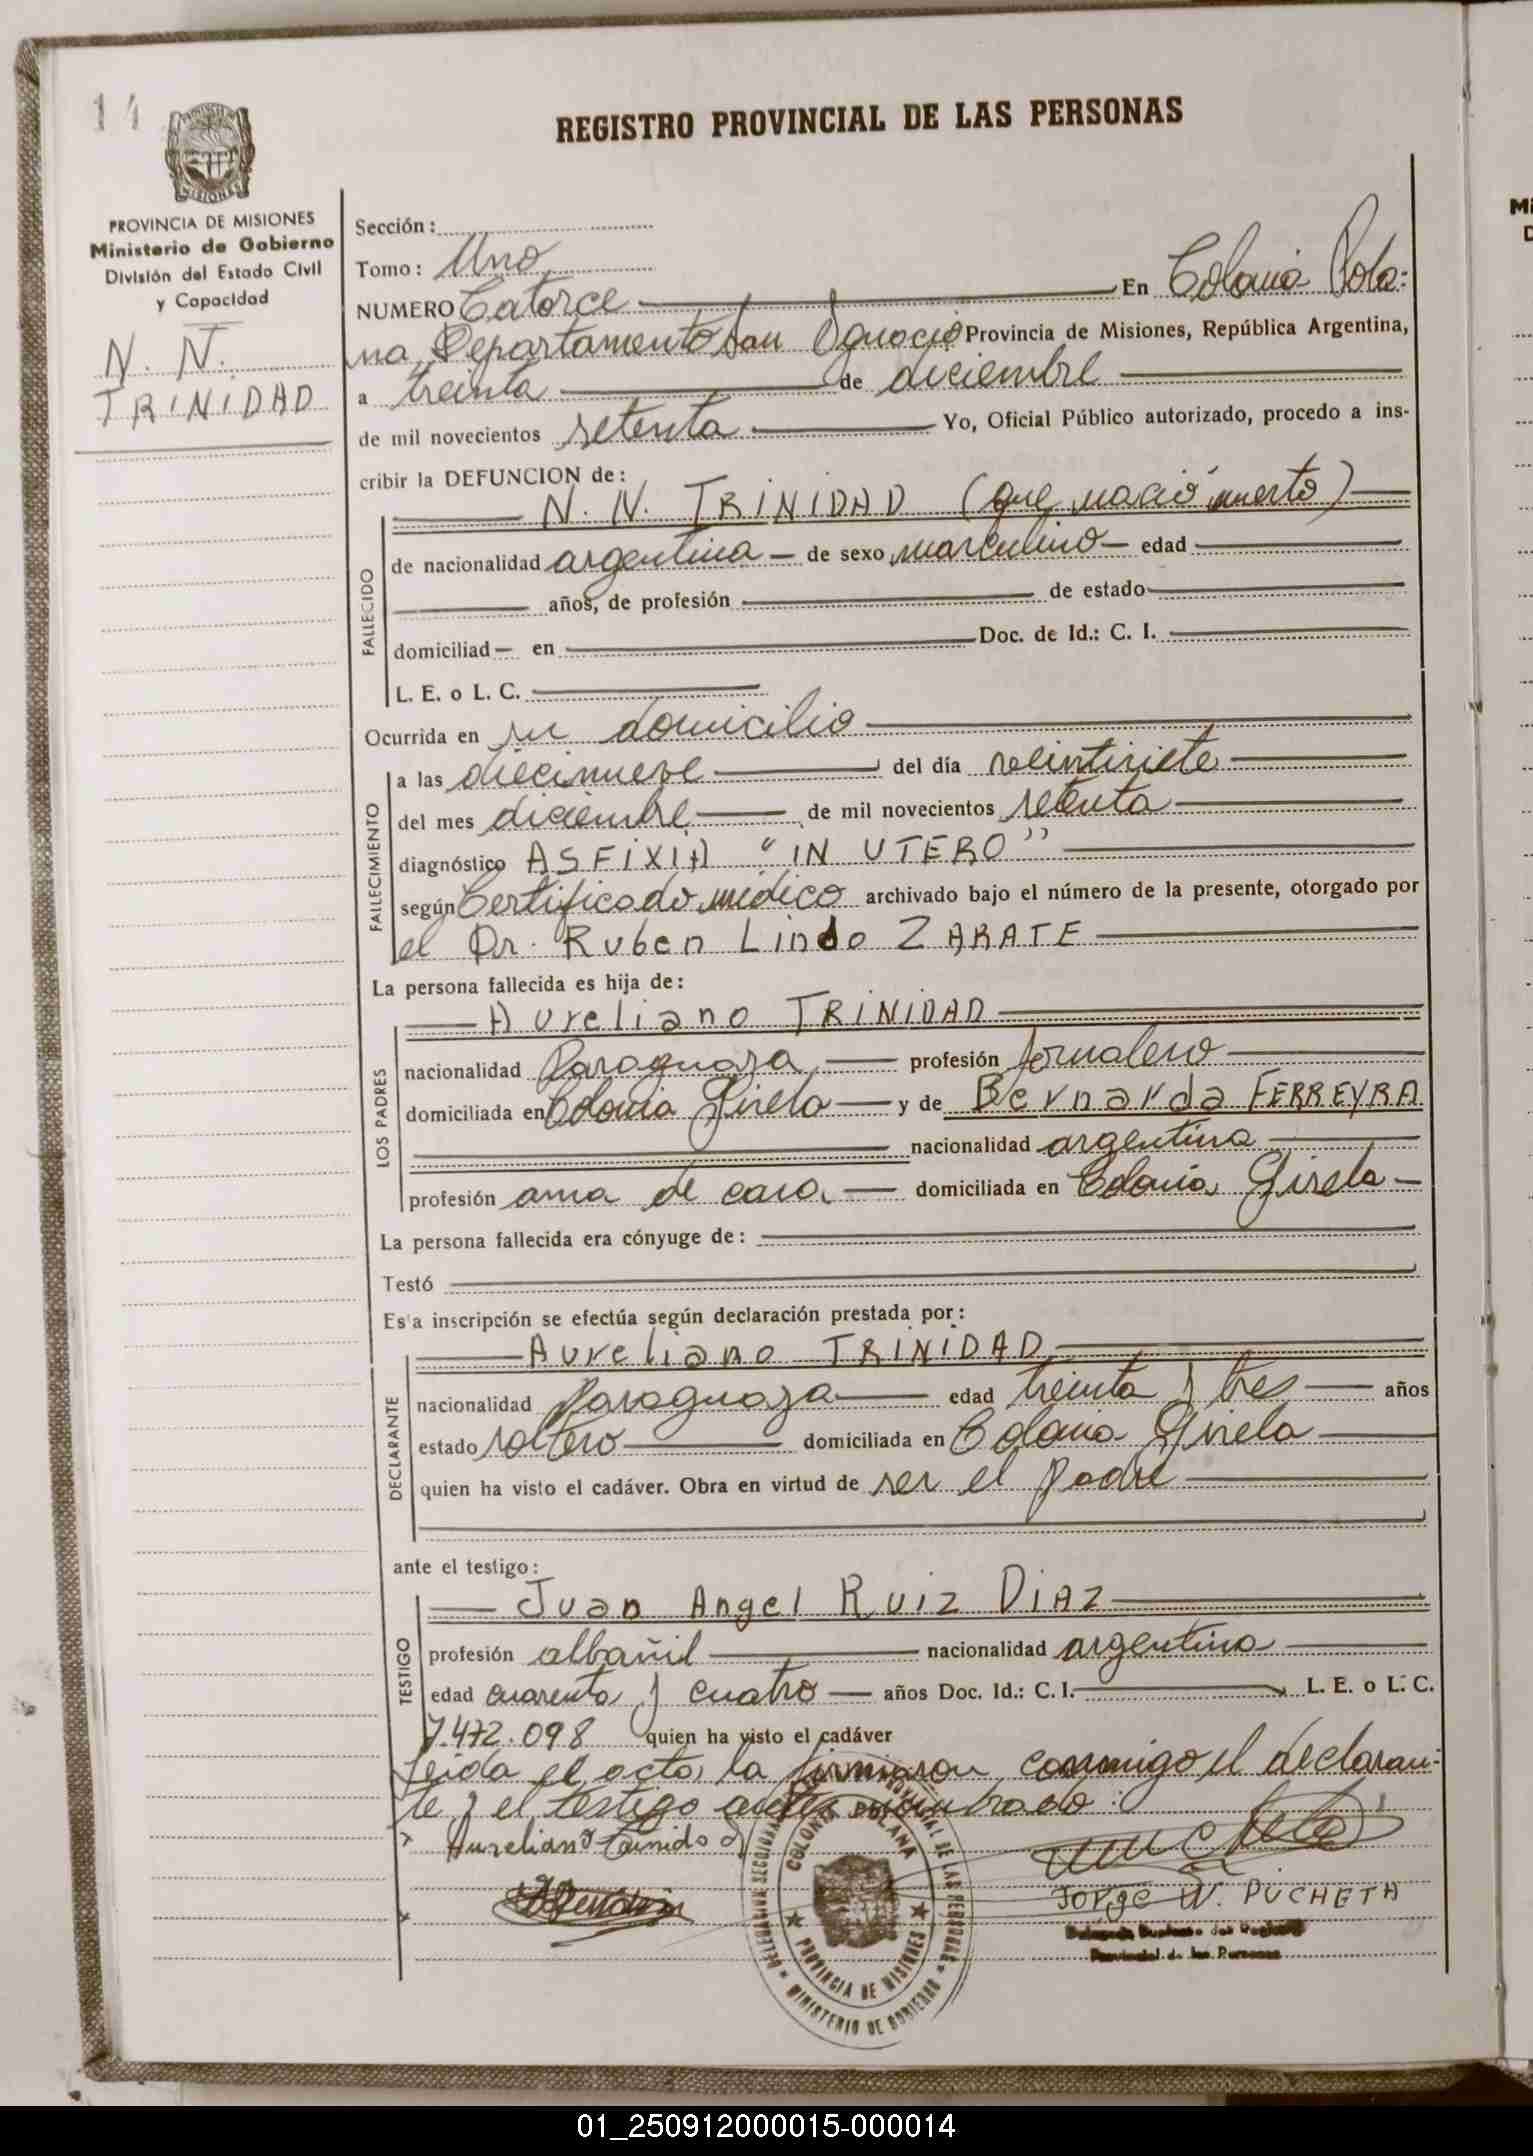 14
REGISTRO PROVINCIAL DE LAS PERSONAS
PROVINCIA DE MISIONES
Ministerio de Gobierno
División del Estado Civil
y Capacidad
N. N.
TRINIDAD
Sección:
Tomo: Uno
NUMERO Catorce En Colonia Pola-
na, Departamento San Ignacio Provincia de Misiones, República Argentina,
a treinta de diciembre
de mil novecientos setenta Yo, Oficial Público autorizado, procedo a ins-
cribir la DEFUNCION de:
N. N. TRINIDAD (que nació muerto)
FALLECIDO
de nacionalidad argentina de sexo masculino edad
años, de profesión de estado
domiciliad en Doc. de Id.: C. I.
L. E. o L. C.
Ocurrida en su domicilio
FALLECIMIENTO
a las diecinueve del día veintisiete
del mes diciembre de mil novecientos setenta
diagnóstico ASFIXIA "IN UTERO"
según Certificado médico archivado bajo el número de la presente, otorgado por
el Dr. Ruben Lindo ZARATE
La persona fallecida es hija de:
LOS PADRES
Aureliano TRINIDAD
nacionalidad Paraguaya profesión Jornalero
domiciliada en Colonia Gisela y de Bernarda FERREYRA
nacionalidad argentina
profesión ama de casa domiciliada en Colonia Gisela
La persona fallecida era cónyuge de:
Testó
Esta inscripción se efectúa según declaración prestada por:
DECLARANTE
Aureliano TRINIDAD
nacionalidad Paraguaya edad treinta y tres años
estado soltero domiciliada en Colonia Gisela
quien ha visto el cadáver. Obra en virtud de ser el padre
ante el testigo:
TESTIGO
Juan Angel Ruiz DIAZ
profesión albañil nacionalidad argentina
edad cuarenta y cuatro años Doc. Id.: C. I. L. E. o L. C.
7.472.098 quien ha visto el cadáver
Leida el acta, la firmaron conmigo el declaran-
te y el testigo antes nombrado:
Aureliano Trinidad
JORGE W. PUCHETA
Provincial de las Personas
COLONIA POLANA
PROVINCIA DE MISIONES
MINISTERIO DE GOBIERNO
01_250912000015-000014